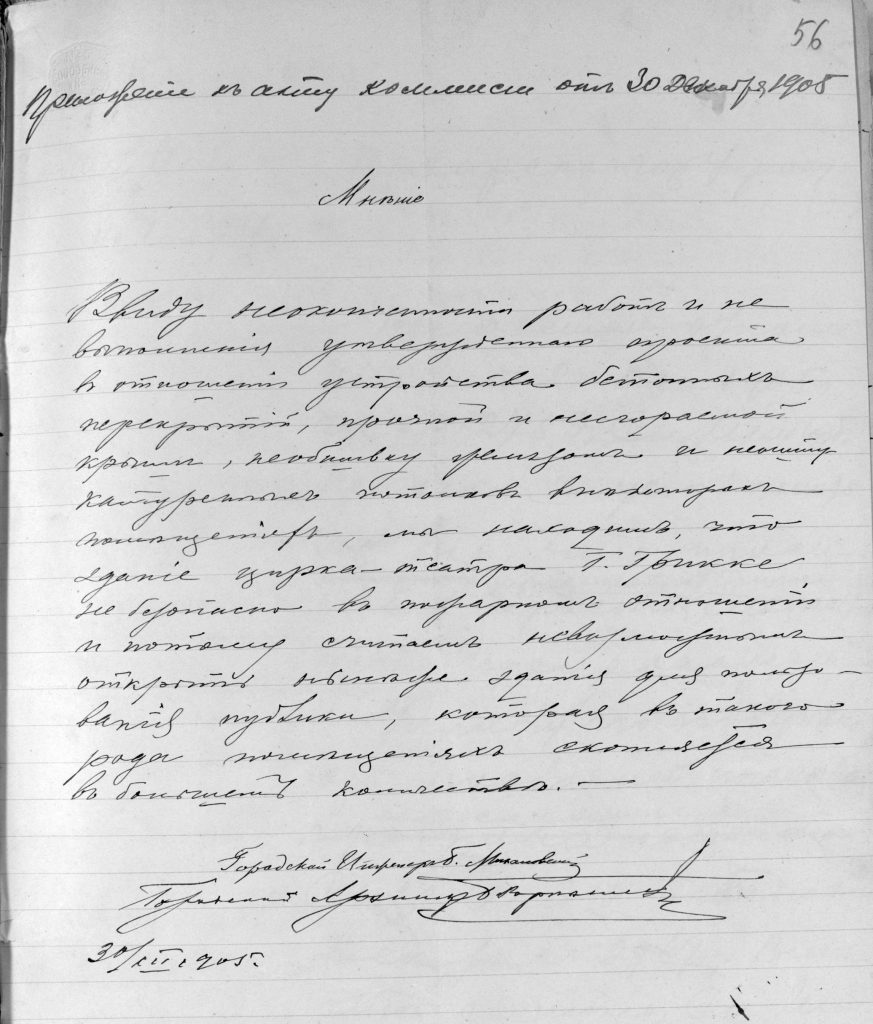 56
Приложенiе къ акту Коммисiи отъ 30 Декабря 1905
Мнѣнiе
Ввиду неоконченности работъ и не
выполненiя утвержденнаго проекта
въ отношенiи устройства бетонныхъ
перекрытiй, прочной и несгораемой
крыши, необшивку желѣзомъ и неошту
катуренные потолковъ внѣкоторыхъ
помѣщенiяхъ, мы находимъ, что
зданiе цирка-театра Г. Грикке
не безопасно въ пожарномъ отношенiи
и потому считаемъ невозможнымъ
открыть нынѣже зданiя для пользо-
ванiя публики, которая въ такого
рода помѣщенiяхъ скопляется
въ большемъ количествѣ. —
Городской Инженеръ
Городской Архитекторъ
30/XII 1905.